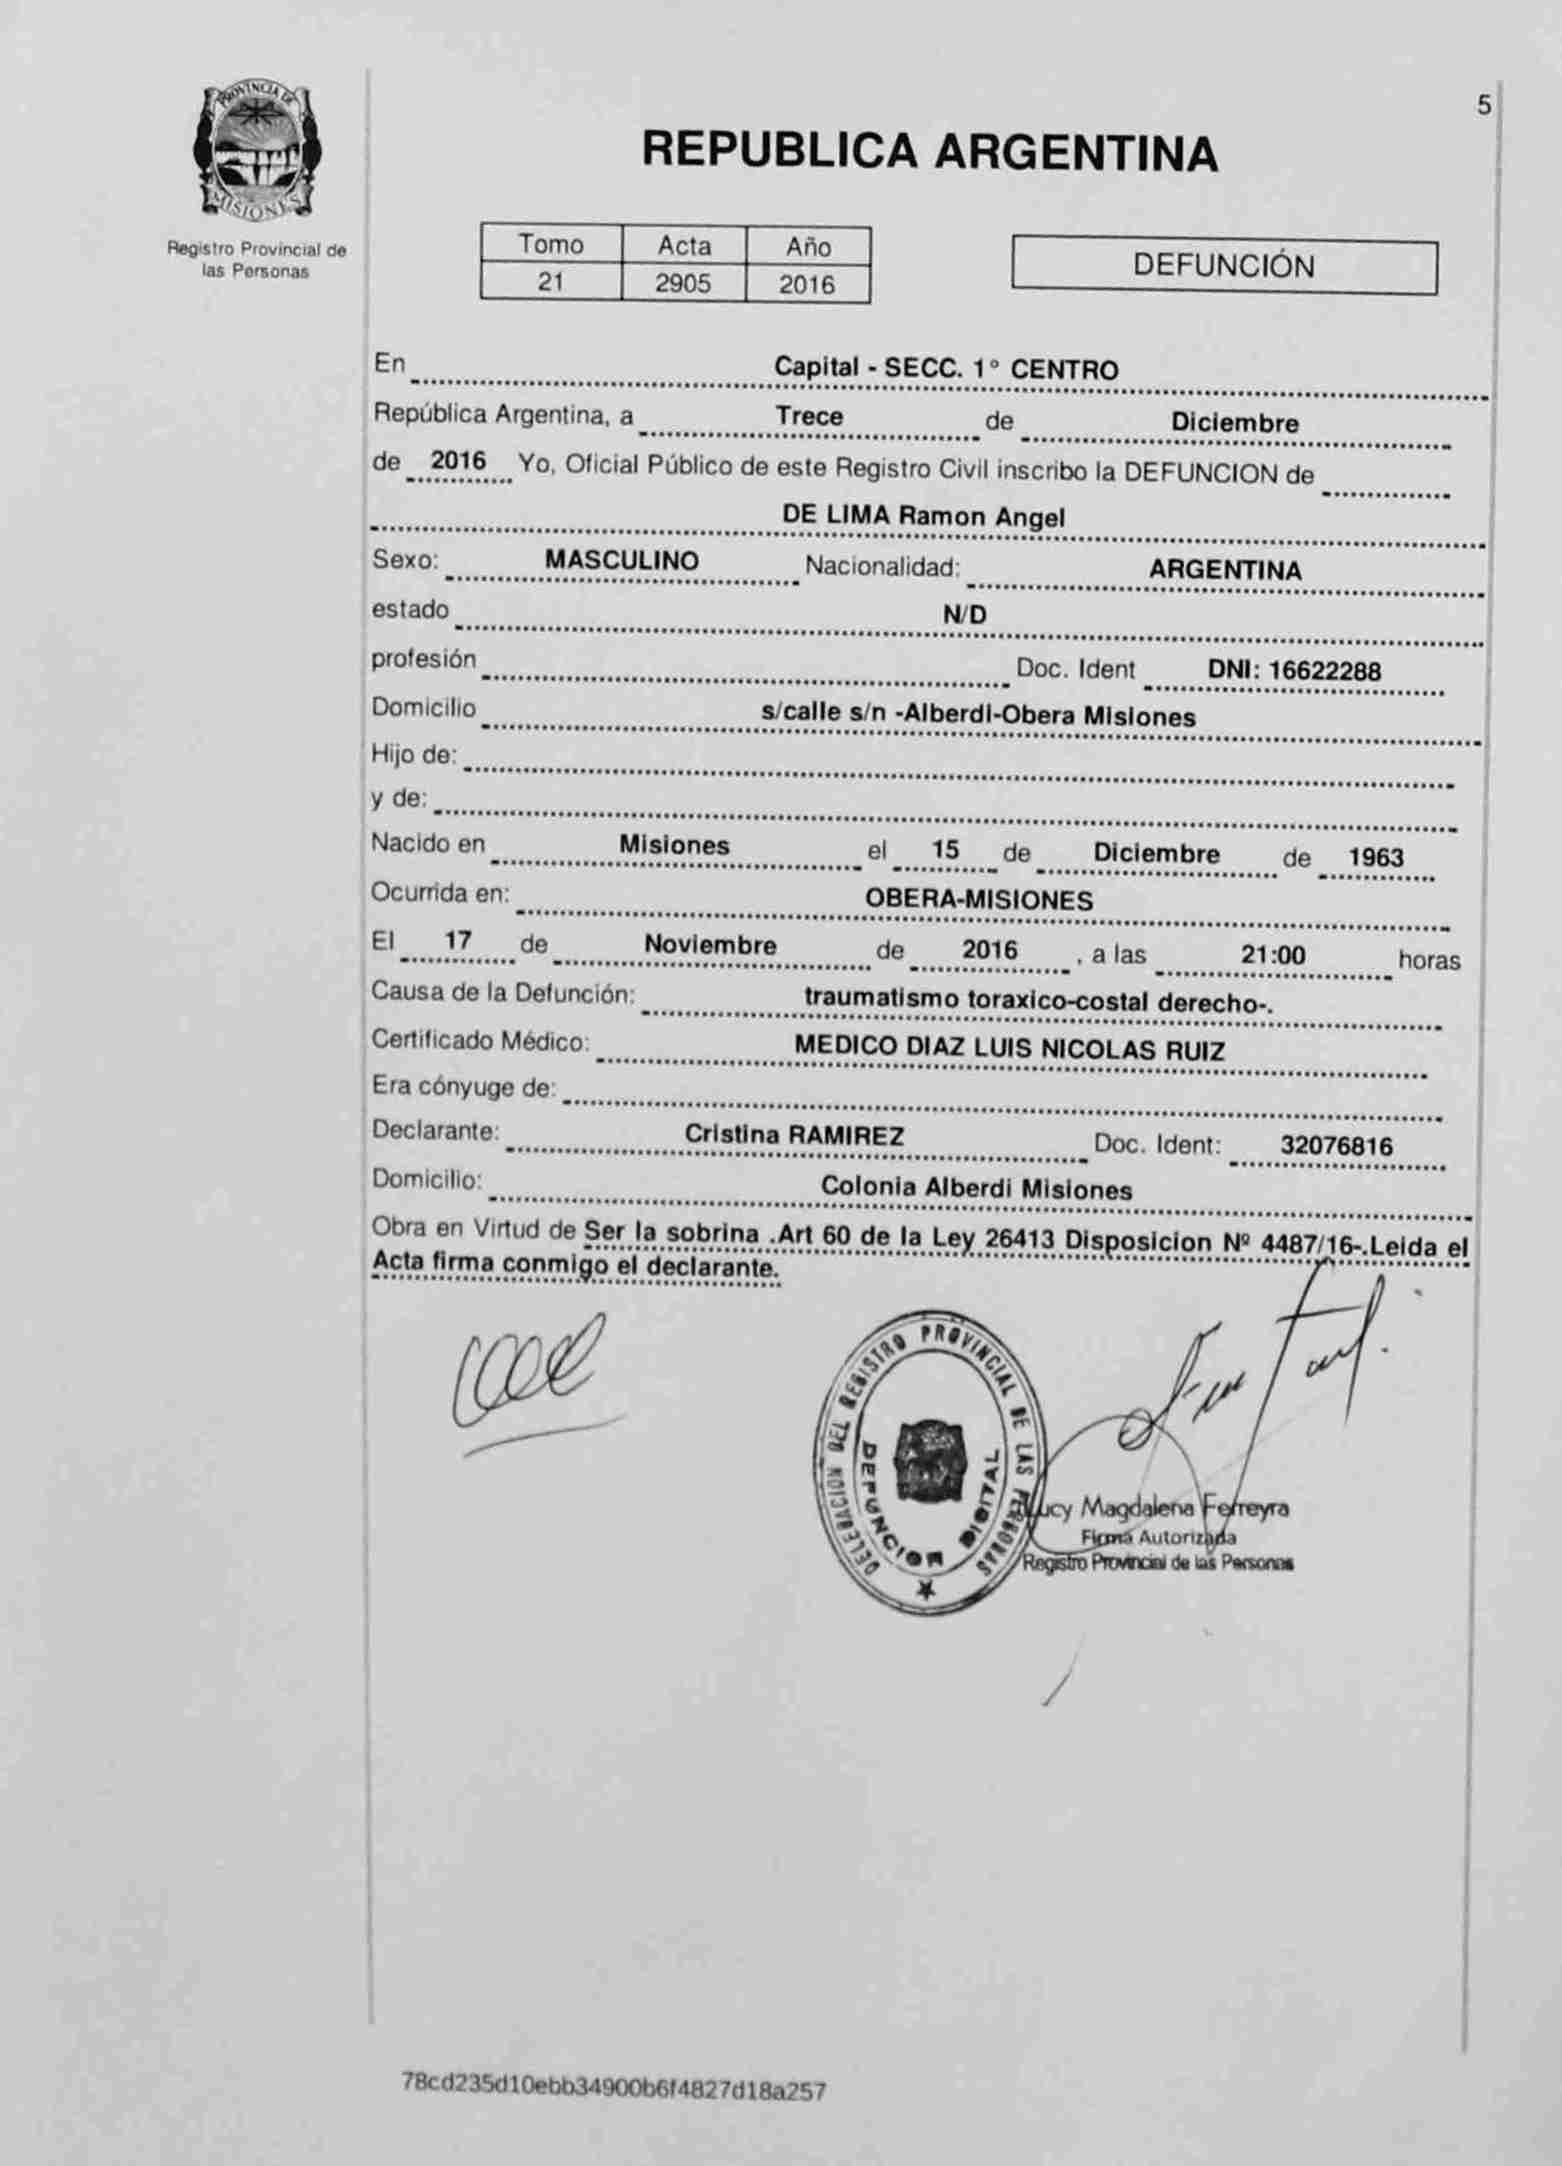 5
PROVINCIA DE
MISIONES
Registro Provincial de
las Personas
REPUBLICA ARGENTINA
Tomo Acta Año
21 2905 2016
DEFUNCIÓN
En Capital - SECC. 1° CENTRO
República Argentina, a Trece de Diciembre
de 2016 Yo, Oficial Público de este Registro Civil inscribo la DEFUNCION de
DE LIMA Ramon Angel
Sexo: MASCULINO Nacionalidad: ARGENTINA
estado N/D
profesión Doc. Ident DNI: 16622288
Domicilio s/calle s/n -Alberdi-Obera Misiones
Hijo de:
y de:
Nacido en Misiones el 15 de Diciembre de 1963
Ocurrida en: OBERA-MISIONES
El 17 de Noviembre de 2016 , a las 21:00 horas
Causa de la Defunción: traumatismo toraxico-costal derecho-.
Certificado Médico: MEDICO DIAZ LUIS NICOLAS RUIZ
Era cónyuge de:
Declarante: Cristina RAMIREZ Doc. Ident: 32076816
Domicilio: Colonia Alberdi Misiones
Obra en Virtud de Ser la sobrina .Art 60 de la Ley 26413 Disposicion Nº 4487/16-.Leida el
Acta firma conmigo el declarante.
DELEGACION DEL REGISTRO PROVINCIAL DE LAS PERSONAS
DEFUNCION DIGITAL
Lucy Magdalena Ferreyra
Firma Autorizada
Registro Provincial de las Personas
78cd235d10ebb34900b6f4827d18a257